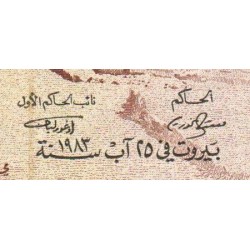 الحاكم
نائب الحاكم الأول
بيروت في ٢٥ آب سنة ١٩٨٣